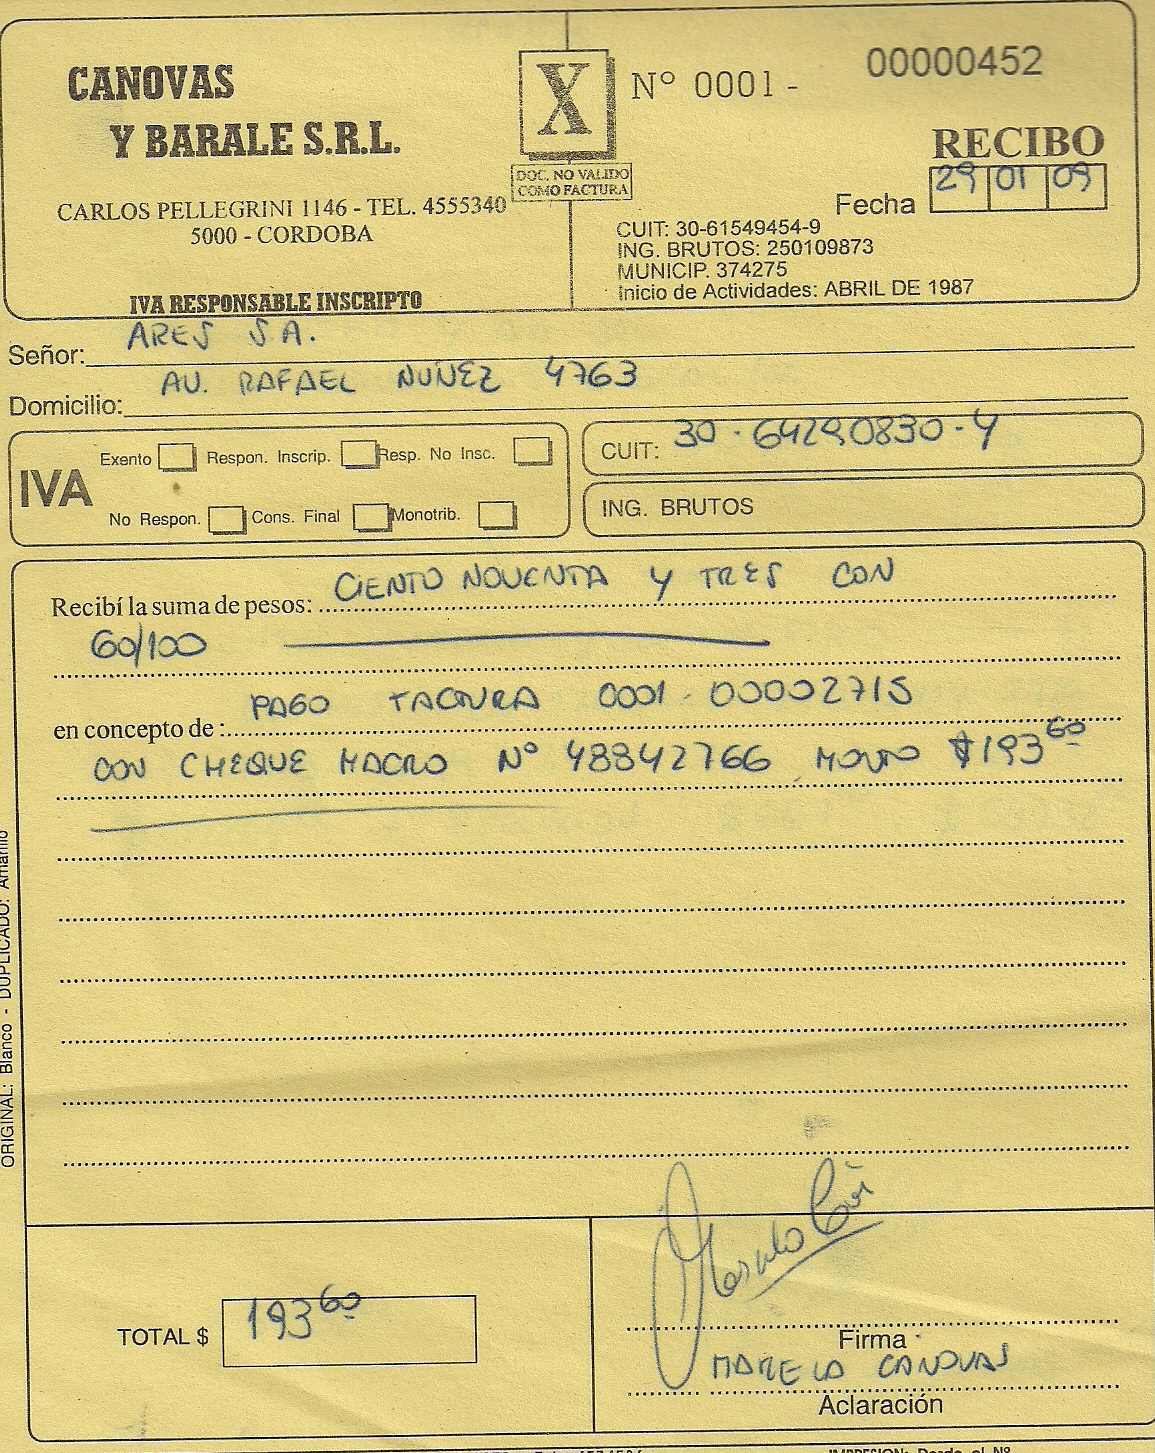 CANOVAS
Y BARALE S.R.L.
CARLOS PELLEGRINI 1146 - TEL. 4555340
5000 - CORDOBA
IVA RESPONSABLE INSCRIPTO
X
DOC. NO VALIDO
COMO FACTURA
Nº 0001 - 00000452
RECIBO
Fecha 29 01 09
CUIT: 30-61549454-9
ING. BRUTOS: 250109873
MUNICIP. 374275
Inicio de Actividades: ABRIL DE 1987
Señor: ARES S.A.
Domicilio: AV. RAFAEL NUÑEZ 4763
IVA
Exento Respon. Inscrip. Resp. No Insc.
No Respon. Cons. Final Monotrib.
CUIT: 30-64290830-4
ING. BRUTOS
Recibí la suma de pesos: CIENTO NOVENTA Y TRES CON
60/100
en concepto de: PAGO FACTURA 0001-00002715
CON CHEQUE MACRO Nº 48842766 MONTO $193 60
ORIGINAL: Blanco - DUPLICADO: Amarillo
TOTAL $ 193 60
Firma
MARCELA CANOVAS
Aclaración